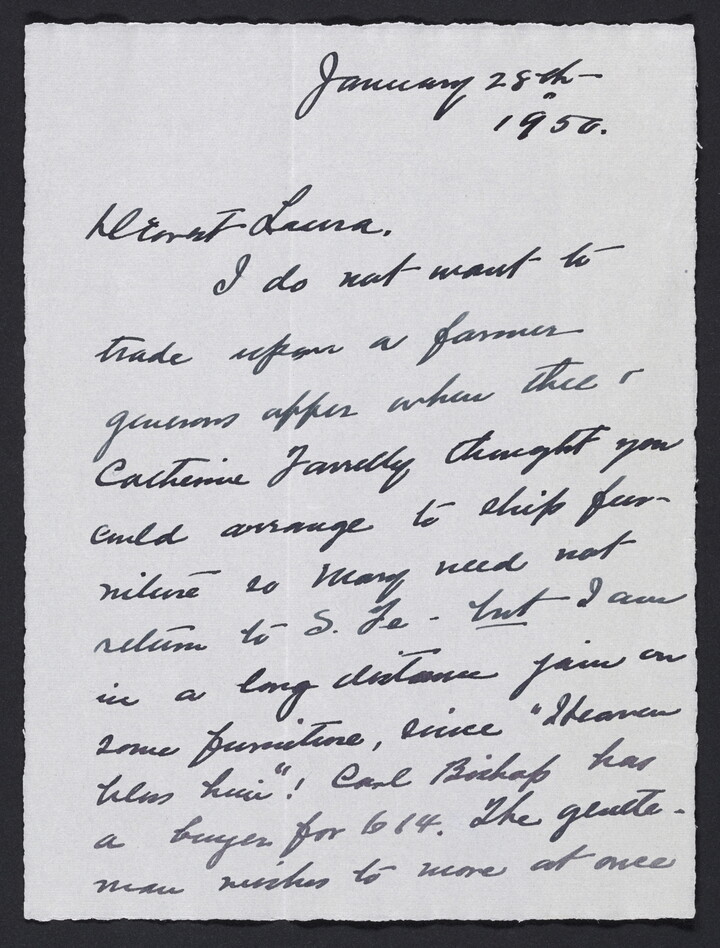 January 28th -
1950.
Dearest Laura.
I do not want to
trade upon a former
generous offer when thee &
Catherine Farrelly thought you
could arrange to ship fur-
niture so Mary need not
return to S. Fe - but I am
in a long distance jam on
some furniture, since "Heaven
bless him"! Carl Bishop has
a buyer for 614. The gentle-
man wishes to move at once